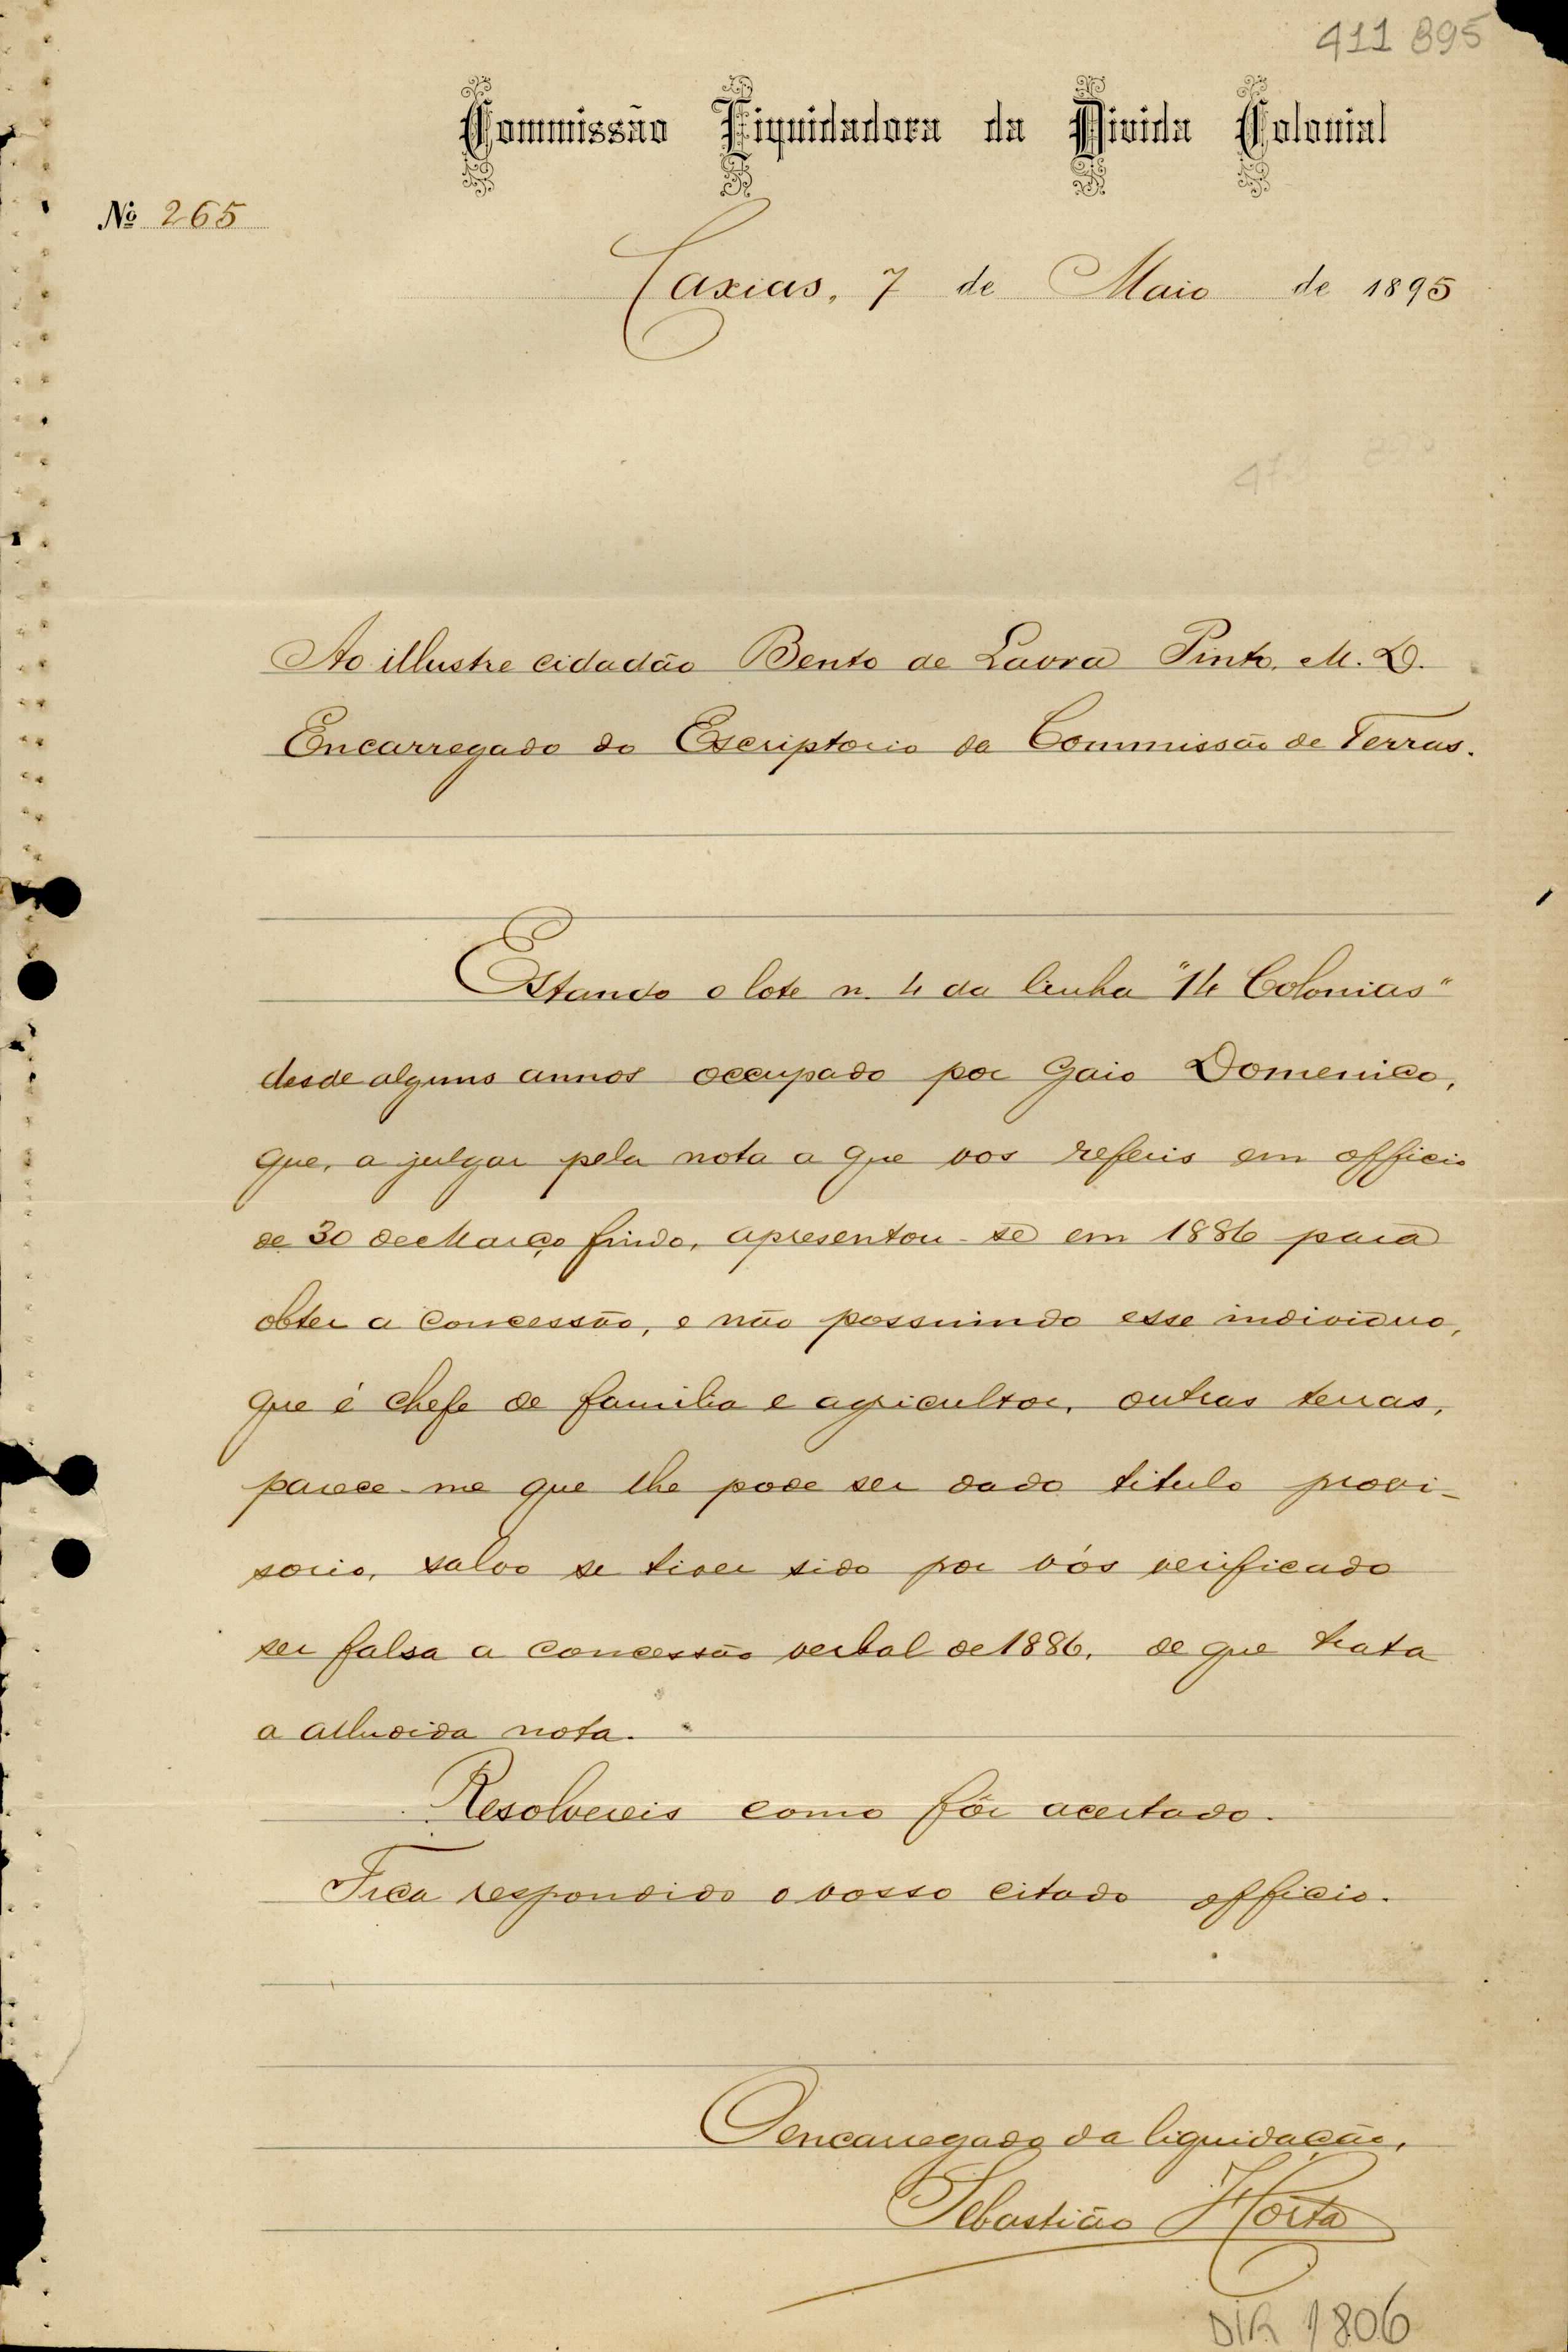 411 895
Commissão Liquidadora da Divida Colonial
Nº 265
Caxias, 7 de Maio de 1895
Ao illustre cidadão Bento de Lavra Pinto, M. D.
Encarregado do Escriptorio da Commissão de Terras.
Estando o lote n. 4 da linha "14 Colonias"
desde alguns annos occupado por Gaio Domenico,
que, a julgar pela nota a que vos referis em officio
de 30 de Março findo, apresentou-se em 1886 para
obter a concessão, e não possuindo esse individuo,
que é chefe de familia e agricultor, outras terras,
parece-me que lhe pode ser dado titulo provi-
sorio, salvo se tiver sido por vós verificado
ser falsa a concessão verbal de 1886, de que trata
a alludida nota.
Resolvereis como fôr acertado.
Fica respondido o vosso citado officio.
O encarregado da liquidação,
Sebastião Horta
DIR 1806